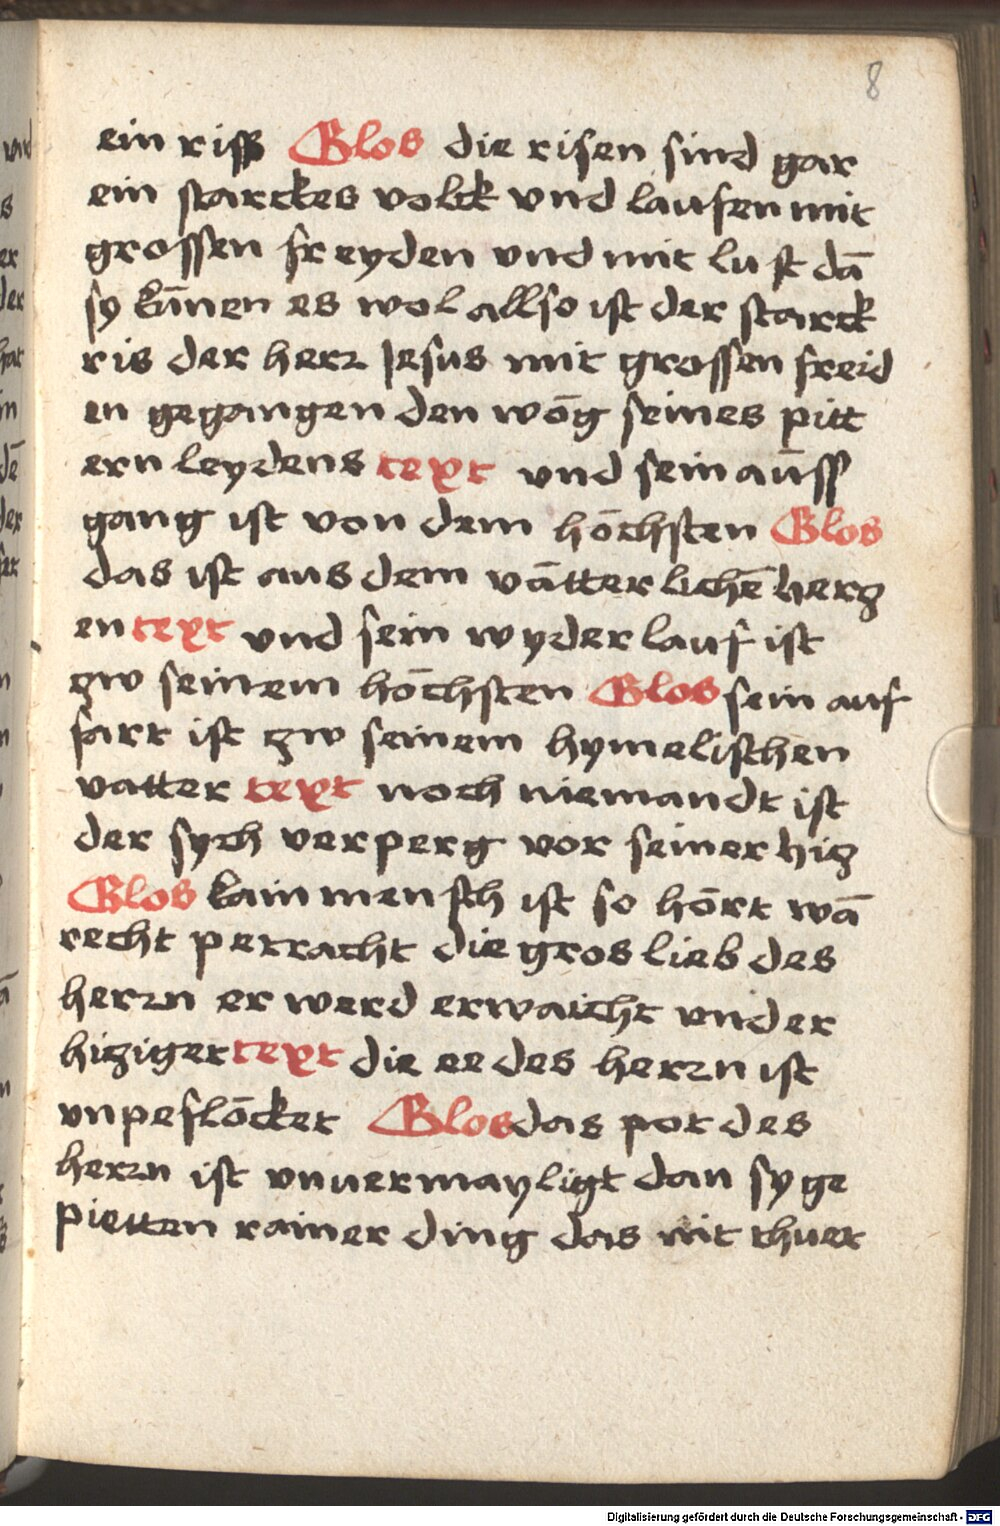 8
ein riss Glos die risen sind gar
ein starckes volck vnd laufen mit
grossen freyden vnd mit lust dā
sy kānen es wol allso ist der starck
ris der herr Jesus mit grossen freid
en gegangen den wōg seines pitt
ern leydens text vnd sein aūss
gang ist von dem hōchsten Glos
das ist aus dem vātterlichē herz
en text vnd sein wyderlauf ist
zw seinem hōchsten Glos sein auf
fart ist zw seinem hymelischen
vatter text noch niemandt ist
der sych verperg vor seiner hiz
Glos kain mensch ist so hōrt wā
recht petracht die gros lieb des
herrn er werd erwaicht vnd er
hiziget text die ee des herrn ist
vnpeflōcket Glos das pot des
herrn ist vnuermayligt dan sy ge
pietten rainer ding das nit thuet
Digitalisierung gefördert durch die Deutsche Forschungsgemeinschaft - DFG